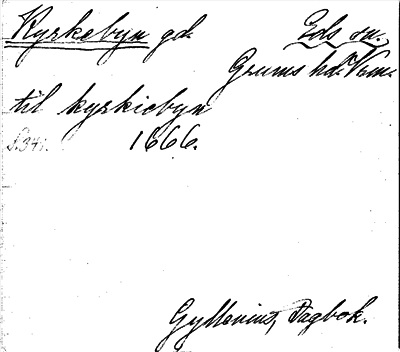 Kyrkebyn gd. Eds sn.
Grums hd. Vrm.
til kyrkiebyn
S.34. 1666.
Gyllenius, Dagbok.